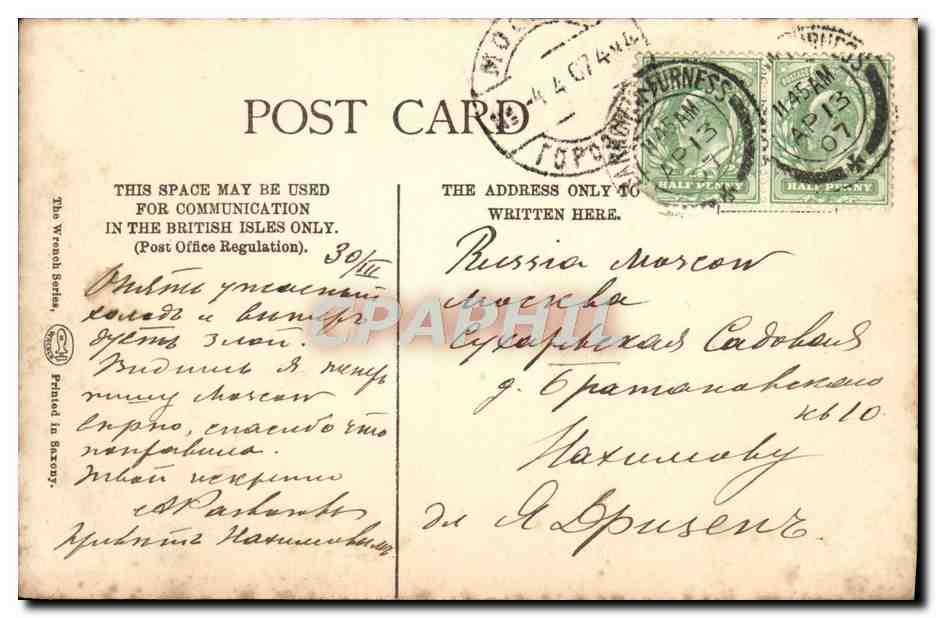 POST CARD
THIS SPACE MAY BE USED
FOR COMMUNICATION
IN THE BRITISH ISLES ONLY.
(Post Office Regulation).
30/III
Опять ужасный
холодъ и вѣтеръ
дуетъ злой.
Видишь я теперь
пишу Moscow
вѣрно, спасибо что
поправила.
Твой искренно
Привѣтъ Нахимовымъ
THE ADDRESS ONLY TO
WRITTEN HERE.
Russia Moscow
Москва
Сухаревская Садовая
д. Братановскаго
кв 10.
Нахимову
дл Я Дризенъ.
The Wrench Series,
WRENCH
Printed in Saxony.
4 4 07
ГОРОД
BARROW-IN-FURNESS
11.45AM
AP 13
07
HALF PENNY
FURNESS
11.45AM
AP 13
07
HALF PENNY
CPAPHIL